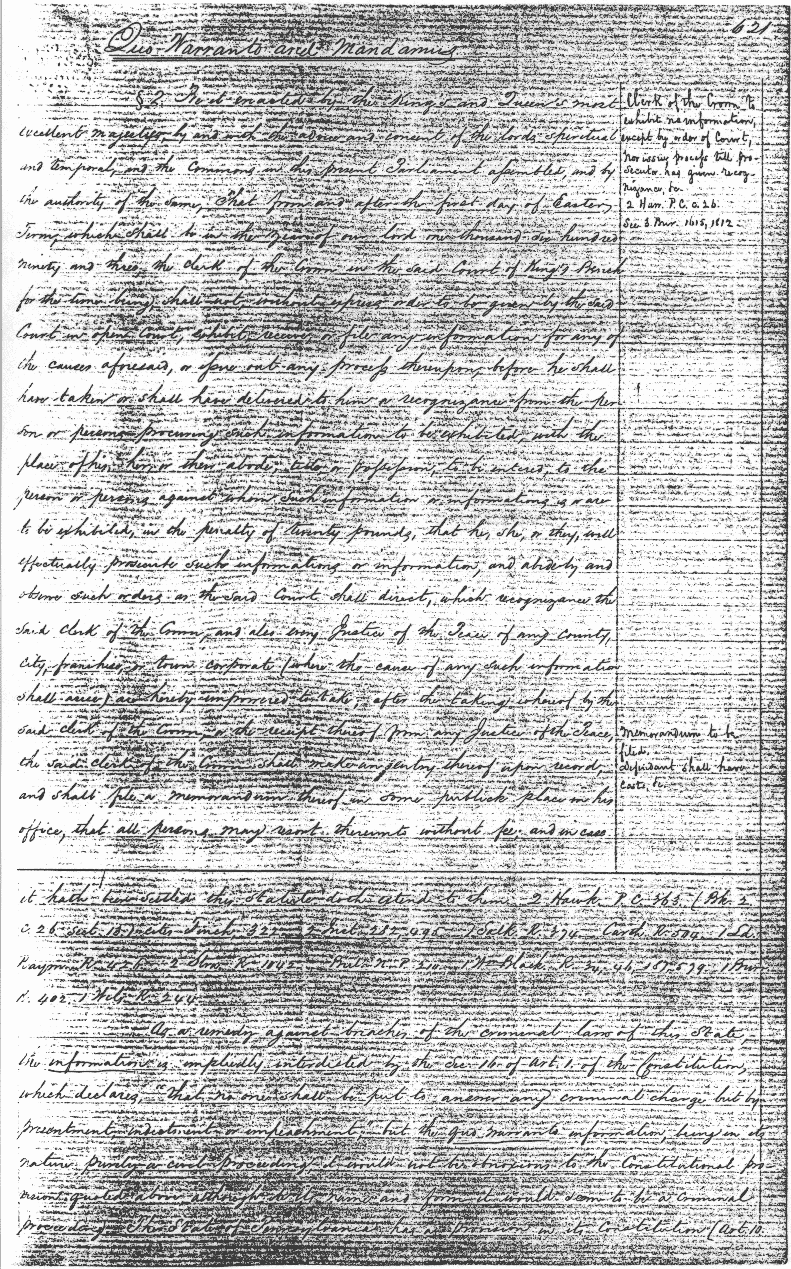 621
Quo Warranto and Mandamus
§ 2. Be it enacted by the King's and Queen's most
excellent majesties by and with the advice and consent of the lords spiritual
and temporal, and the Commons, in this present Parliament assembled, and by
the authority of the same, That from and after the first day of Easter
Term, which shall be in the year of our lord one thousand six hundred
ninety and three, the clerk of the Crown in the said Court of King's Bench
for the time being, shall not, without express order to be given by the said
Court in open Court, exhibit, receive or file any information for any of
the causes aforesaid, or issue out any process thereupon, before he shall
have taken or shall have delivered to him a recognizance from the per
son or persons procuring such information to be exhibited, with the
place of his, her, or their abode, title or possession, to be entered to the
person or persons against whom such information or informations is or are
to be exhibited, in the penalty of twenty pounds, that he, she, or they, will
effectually prosecute such informations or information, and abide by and
observe such orders as the said Court shall direct, which recognizance the
said clerk of the Crown, and also every Justice of the Peace of any County,
City, franchise or town corporate (where the cause of any such information
shall arise) are hereby impowered to take, after the taking whereof by the
said clerk of the Crown, or the receipt thereof from any Justice of the Peace,
the said clerk of the Crown shall make an entry thereof upon record,
and shall file a memorandum thereof in some publick place in his
office, that all persons may resort thereunto without fee and in case
Clerk of the Crown to
exhibit no information,
except by order of Court,
nor issue process till pro-
secutor has given recog-
nizance, &c.
2 Haw. P. C. c. 26.
See 3 Bur. 1615, 1812
Memorandum to be
filed.
Defendant shall have
costs, &c.
it hath been settled this Statute doth extend to them 2 Hawk. P. C. 363. (Bk. 2
c. 26 Sect. 322 2 Inst. 282, 495 1 Salk R. 374 Carth R. 1 Ld.
Raym R. 2 Stra R. N. P. 210 1 Wm Black. R. 1 Bur
R. 402. 1 Wils R. 244
As a remedy against breaches of the criminal law of this State,
the information is impliedly interdicted by the Sec. 16. of Art. 1. of the Constitution,
which declares, "that no one shall be put to answer any criminal charge but by
presentment, indictment or impeachment," but the quo warranto information, being in its
nature purely a civil proceeding it would not be obnoxious to the Constitutional pro-
visions quoted above although in its name and form it would seem to be a criminal
proceeding. The State of Pennsylvania has a provision in its Constitution (Art. 10